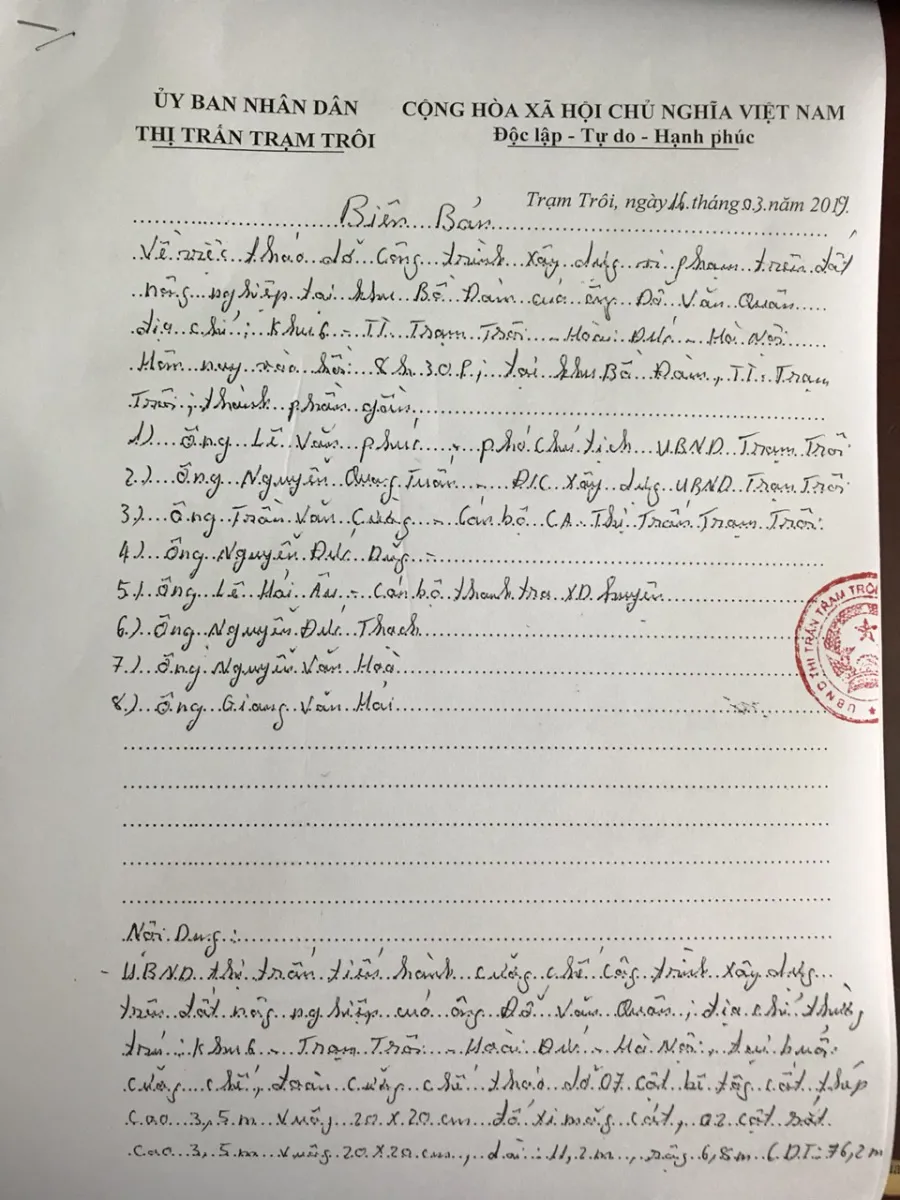 ỦY BAN NHÂN DÂN
THỊ TRẤN TRẠM TRÔI
CỘNG HÒA XÃ HỘI CHỦ NGHĨA VIỆT NAM
Độc lập - Tự do - Hạnh phúc
Trạm Trôi, ngày 16 tháng 03 năm 2019.
Biên Bản
Về việc tháo dỡ công trình xây dựng vi phạm trên đất
nông nghiệp tại khu Bồ Đàm của ông Đỗ Văn Quân
địa chỉ: Khu 6 - TT. Trạm Trôi - Hoài Đức - Hà Nội
Hôm nay vào hồi: 8h30P; tại khu Bồ Đàm, TT. Trạm
Trôi; thành phần gồm
1) Ông Lê Văn Phúc - phó chủ tịch UBND Trạm Trôi
2) Ông Nguyễn Quang Tuấn - ĐC Xây dựng UBND Trạm Trôi
3) Ông Trần Văn Cường - Cán bộ CA Thị Trấn Trạm Trôi.
4) Ông Nguyễn Đức Dũng -
5) Ông Lê Hải Âu - Cán bộ thanh tra XD huyện
6) Ông Nguyễn Đức Thạch
7) Ông Nguyễn Văn Hoà
8) Ông Giang Văn Hải
UBND THỊ TRẤN TRẠM TRÔI
Nội Dung:
- UBND thị trấn tiến hành cưỡng chế công trình xây dựng
trên đất nông nghiệp của ông Đỗ Văn Quân; địa chỉ thường
trú: Khu 6 - Trạm Trôi - Hoài Đức - Hà Nội, tại buổi
cưỡng chế, đoàn cưỡng chế tháo dỡ 07 cột bê tông cốt thép
cao 3,5m vuông 20 x 20 cm đổ xi măng cát, 02 cột sắt
cao 3,5m vuông 20 x 20 cm, dài: 11,2m, rộng 6,8m (DT: 76,2 m